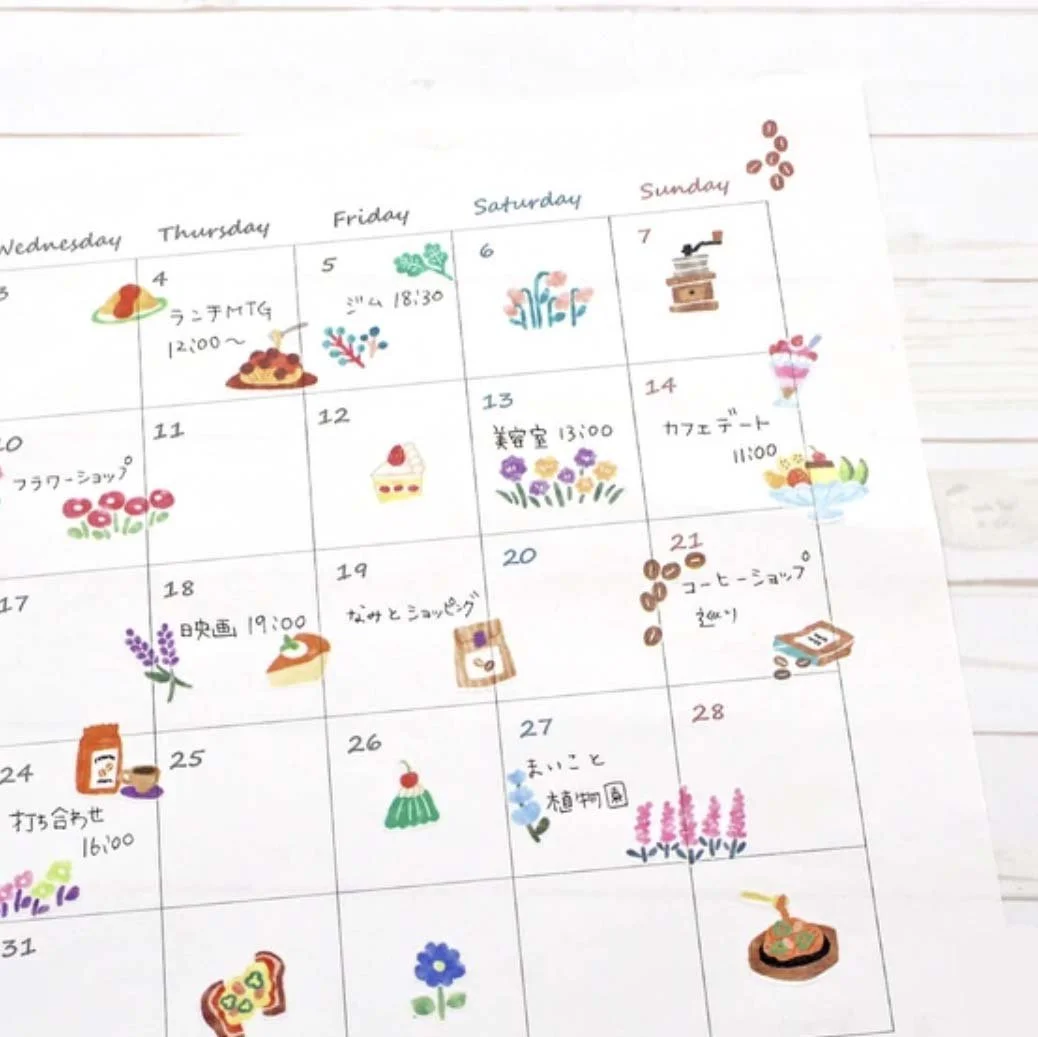 Wednesday Thursday Friday Saturday Sunday
3 4 5 6 7
ランチMTG
12:00〜
ジム 18:30
10 11 12 13 14
フラワーショップ
美容室 13:00
カフェデート
11:00
17 18 19 20 21
映画 19:00
なみとショッピング
コーヒーショップ
巡り
24 25 26 27 28
打ち合わせ
16:00
まいこと
植物園
31